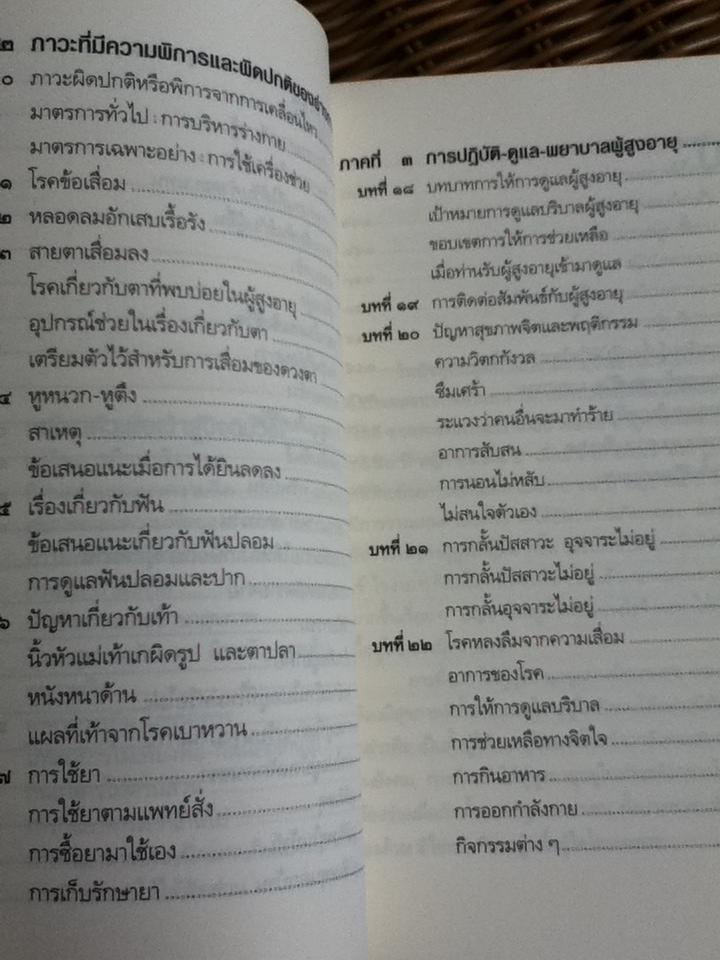 ๒ ภาวะที่มีความพิการและผิดปกติของร่างกาย
๐ ภาวะผิดปกติหรือพิการจากการเคลื่อนไหว
มาตรการทั่วไป : การบริหารร่างกาย
มาตรการเฉพาะอย่าง : การใช้เครื่องช่วย
๑ โรคข้อเสื่อม
๒ หลอดลมอักเสบเรื้อรัง
๓ สายตาเสื่อมลง
โรคเกี่ยวกับตาที่พบบ่อยในผู้สูงอายุ
อุปกรณ์ช่วยในเรื่องเกี่ยวกับตา
เตรียมตัวไว้สำหรับการเสื่อมของดวงตา
๔ หูหนวก-หูตึง
สาเหตุ
ข้อเสนอแนะเมื่อการได้ยินลดลง
๕ เรื่องเกี่ยวกับฟัน
ข้อเสนอแนะเกี่ยวกับฟันปลอม
การดูแลฟันปลอมและปาก
๖ ปัญหาเกี่ยวกับเท้า
นิ้วหัวแม่เท้าเกผิดรูป และตาปลา
หนังหนาด้าน
แผลที่เท้าจากโรคเบาหวาน
๗ การใช้ยา
การใช้ยาตามแพทย์สั่ง
การซื้อยามาใช้เอง
การเก็บรักษายา
ภาคที่ ๓ การปฏิบัติ-ดูแล-พยาบาลผู้สูงอายุ
บทที่ ๑๘ บทบาทการให้การดูแลผู้สูงอายุ
เป้าหมายการดูแลบริบาลผู้สูงอายุ
ขอบเขตการให้การช่วยเหลือ
เมื่อท่านรับผู้สูงอายุเข้ามาดูแล
บทที่ ๑๙ การติดต่อสัมพันธ์กับผู้สูงอายุ
บทที่ ๒๐ ปัญหาสุขภาพจิตและพฤติกรรม
ความวิตกกังวล
ซึมเศร้า
ระแวงว่าคนอื่นจะมาทำร้าย
อาการสับสน
การนอนไม่หลับ
ไม่สนใจตัวเอง
บทที่ ๒๑ การกลั้นปัสสาวะ อุจจาระไม่อยู่
การกลั้นปัสสาวะไม่อยู่
การกลั้นอุจจาระไม่อยู่
บทที่ ๒๒ โรคหลงลืมจากความเสื่อม
อาการของโรค
การให้การดูแลบริบาล
การช่วยเหลือทางจิตใจ
การกินอาหาร
การออกกำลังกาย
กิจกรรมต่าง ๆ